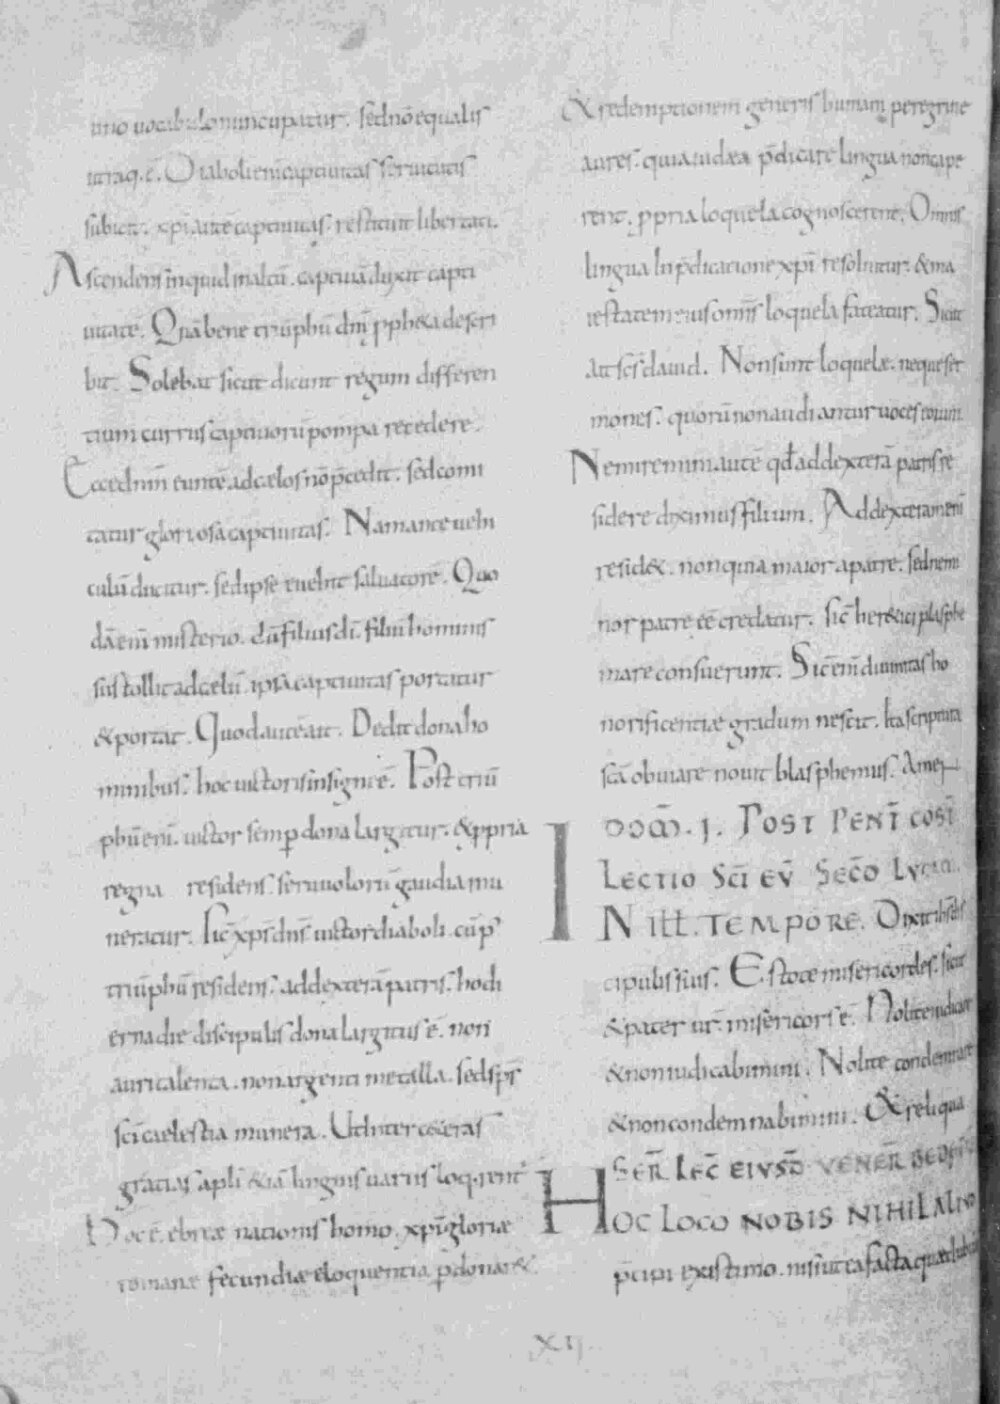 uno vocabulo nuncupatur. sed nō equalis
utraq. ē. Diaboli enī captivitas servitutis
subicit. xp̄i aute captivitas. restituit libertati.
Ascendens inquid in altū. captivā duxit capti
vitatē. Qua bene triūphū dnī ꝓph&a descri
bit. Solebat sicut dicunt regum differen
tium currus captivorū pompa recedere.
Ecce dnīm euntē ad cælos nō p̄cedit. sed comi
tatur gloriosa captivitas. Nam ante vehi
culū ducitur. sed ipse evehit salvatorē. Quo
dā enī misterio. dū filius dī. filiū hominis
sustollit ad cælū. ipsa captivitas portatur
& portat. Quod autē ait. Dedit dona ho
minibus. hoc victoris insigne ē. Post triū
phū enī. victor semꝑ dona largitur. & ꝓpria
regna residens. servulorū gaudia mu
neratur. Sic xp̄s dn̄s victor diaboli. cū p̄
triūphū residens. ad dexterā patris. hodi
erna die discipulis dona largitus ē. non
auri talenta. non argenti metalla. sed sp̄s
sc̄i cælestia munera. Ut inter c&eras
gratias apl̄i &iā linguis variis loq.rent
Hoc ē. ebreæ nationis homo. xp̄i gloriæ
romanæ fecundiæ eloquentia p̄donar&.
& redemptionem generis humani peregrine
aures. quia iudæa p̄dicare lingua non cape
rent. ꝓpria loquela cognoscerent. Omnis
lingua in p̄dicatione xp̄i resolvitur. & ma
iestatem eius omīs loquela fateatur. Sicut
ait sc̄s david. Non sunt loquelæ. neque ser
mones. quorū non audiantur voces eorum.
Nemiremini autē qđ ad dexterā patris re
sidere diximus filium. Ad dexteram enī
resid&. non quia maior a patre. sed ne mi
nor patre eē credatur. sic her&ici plasphe
mare consuerunt. Sic enī divinitas ho
norificentiæ gradum nescit. Ita scriptura
sc̄a obviare novit blasphemus. Amen
DOM̄. I. POST PENT̄ COST̄
LECTIO SC̄I EV̄ SEC̄D LUCAM.
IN ILL. TEMPORE. Dixit ihs̄ dis
cipulis suis. Estote misericordes. sicut
& pater vr̄. misericors ē. Nolite iudicare
& non iudicabimini. Nolite condemnare
& non condemnabimini. & reliqua
SER̄. LEC̄ EIUSD̄ VENER̄. BEDE
HOC LOCO NOBIS NIHIL ALIUD
p̄cipi existimo. nisi ut ea facta quæ dubium
XII